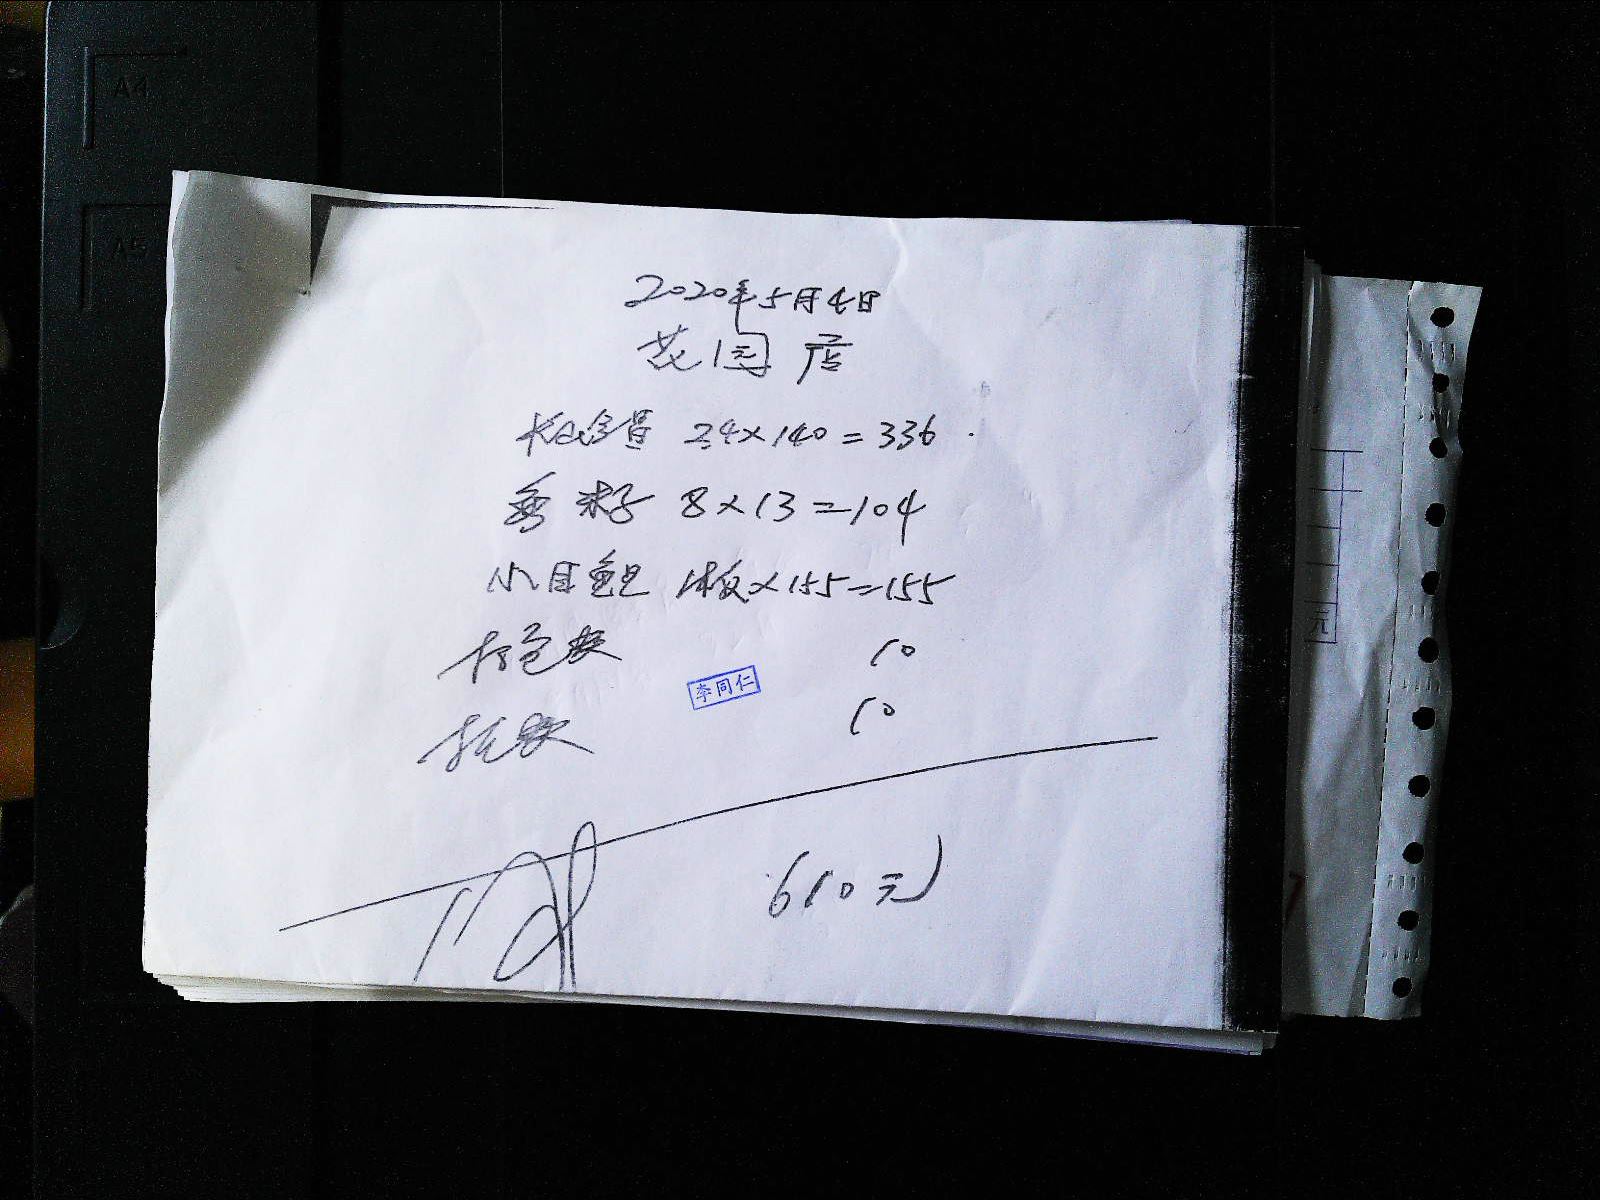 A4
A5
2020年5月4日
花园店
2.4×140=336
8×13=104
小目鱼 1板×155=155
打包费 10
李同仁
10
610元
元